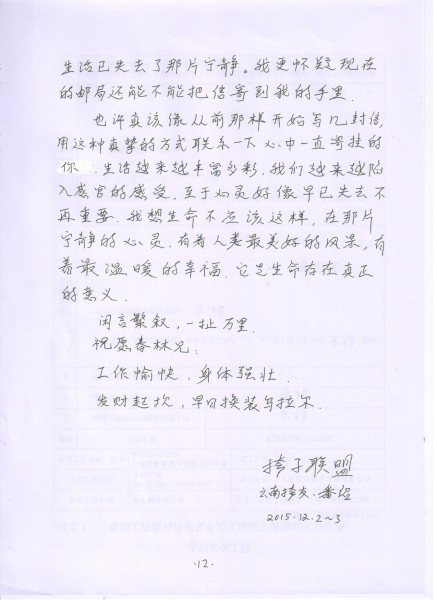 生活已失去了那片宁静。我更怀疑现在
的邮局还能不能把信寄到我的手里.
也许真该像从前那样开始写几封信,
用这种真挚的方式联系一下心中一直寄挂的
你.生活越来越丰富多彩,我们越来越陷
入感官的感受,至于心灵好像早已失去不
再重要.我想生命不应该这样,在那片
宁静的心灵,有着人类最美好的风景,有
着最温暖的幸福.它是生命存在真正
的意义.
闲言繁叙,一扯万里.
祝愿春林兄:
工作愉快,身体强壮.
发财起坎,早日换装乌拉尔.
挎子联盟
云南挎友·番
2015.12.2~3
·12·